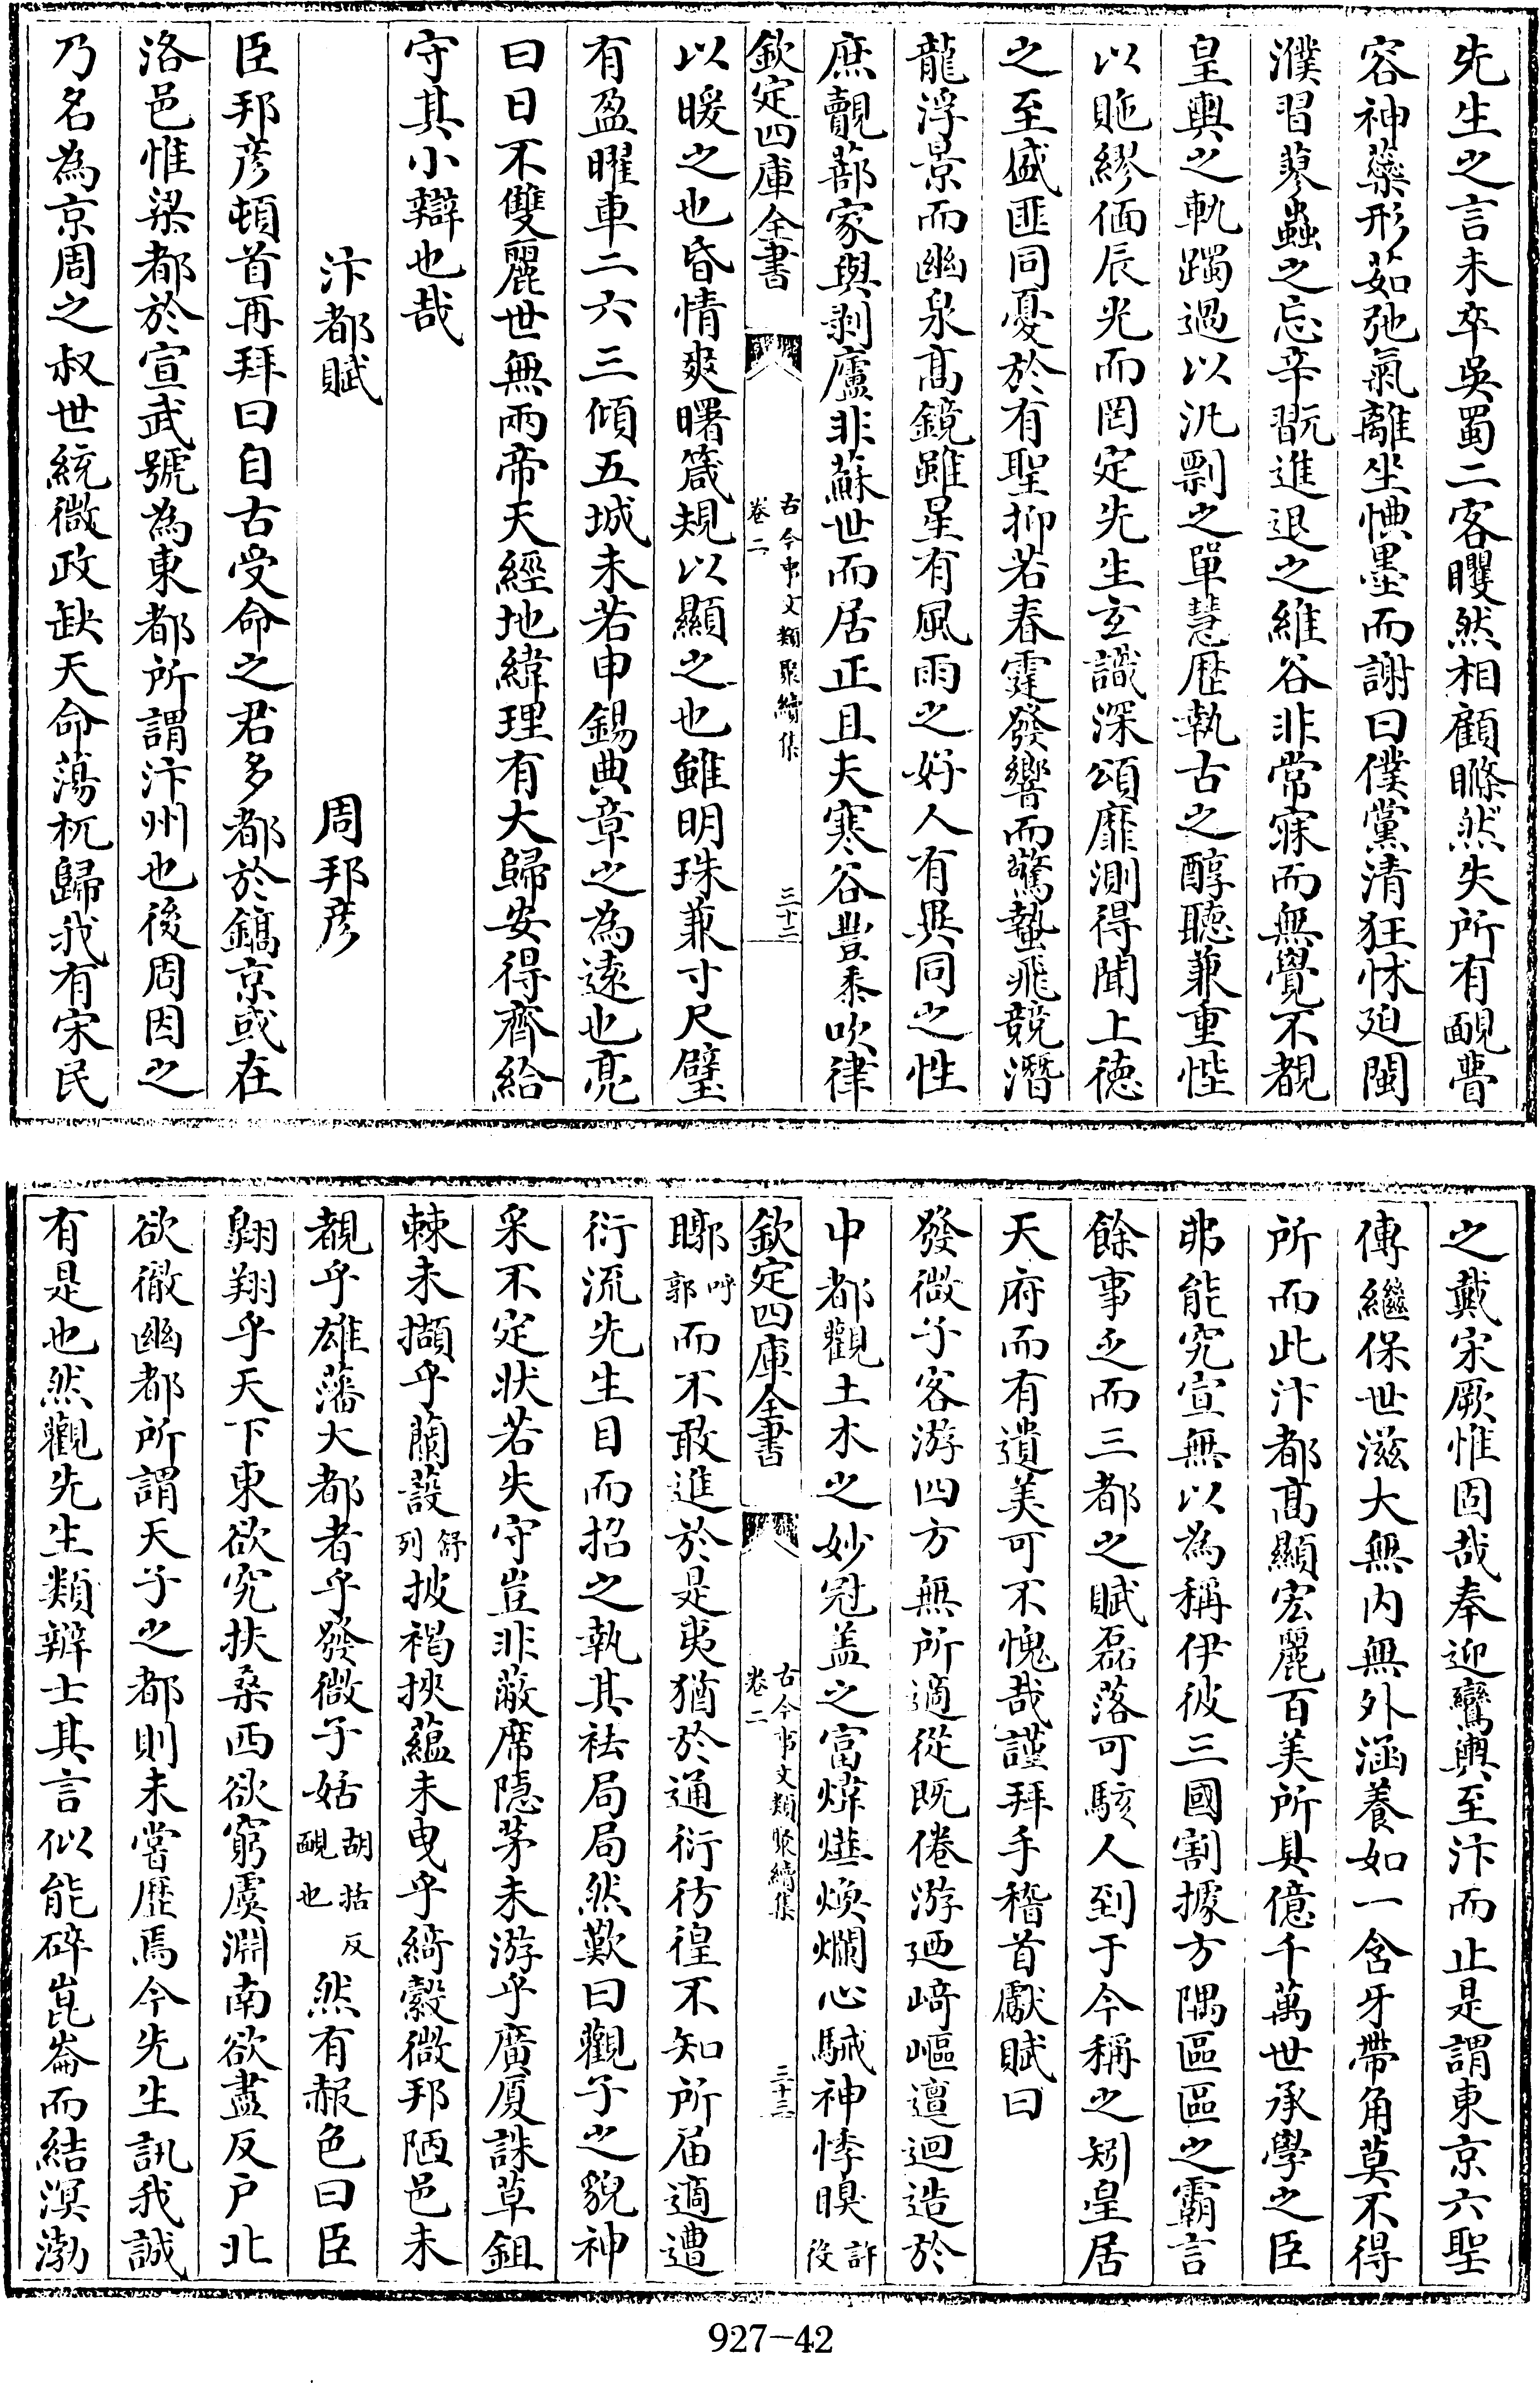 先生之言未卒吳蜀二客矍然相顧䁬然失所有靦瞢
容神蘂形茹弛氣離坐㥏墨而謝曰僕黨清狂怵廹閩
濮習蓼蟲之忘辛翫進退之維谷非常寐而無覺不覩
皇輿之軌躅過以汎剽之單慧歴執古之醇聽兼重悂
以貤繆偭辰光而罔定先生玄識深頌靡測得聞上徳
之至盛匪同憂於有聖抑若春霆發響而驚蟄飛競潛
龍浮景而幽泉髙鏡雖星有風雨之好人有異同之性
庶覿蔀家與剥廬非蘇世而居正且夫寒谷豐黍吹律
欽定四庫全書
古今事文類聚續集
卷二
三十二
以暖之也昏情爽曙箴規以顯之也雖明珠兼寸尺璧
有盈曜車二六三傾五城未若申錫典章之為遠也亮
曰日不雙麗世無兩帝天經地緯理有大歸安得齊給
守其小辯也哉
汴都賦 周邦彦
臣邦彦頓首再拜曰自古受命之君多都於鎬京或在
洛邑惟梁都於宣武號為東都所謂汴州也後周因之
乃名為京周之叔世統微政缺天命蕩杌歸我有宋民
之戴宋厥惟固哉奉迎鸞輿至汴而止是謂東京六聖
傳繼保世滋大無内無外涵養如一含牙帶角莫不得
所而此汴都髙顯宏麗百美所具億千萬世承學之臣
弗能究宣無以為稱伊彼三國割據方隅區區之霸言
餘事乏而三都之賦磊落可駭人到于今稱之矧皇居
天府而有遺美可不愧哉謹拜手稽首獻賦曰
發微子客游四方無所適從既倦游廼崎嶇邅迴造於
中都觀土木之妙冠盖之富煒燁煥爛心駴神悸瞁許役
矎呼郭而不敢進於是夷猶於通衍彷徨不知所届適遭
衍流先生目而招之執其袪局局然歎曰觀子之貌神
采不定状若失守豈非蔽席隠茅未游乎廣厦誅草鉏
棘未擷乎蘭蔎舒列披褐挾蘊未曳乎綺縠微邦陋邑未
覩乎雄藩大都者乎發微子姡胡括反靦也然有赧色曰臣
翺翔乎天下東欲究扶桑西欲窮虞淵南欲盡反戶北
欲徹幽都所謂天子之都則未嘗歴焉今先生訊我誠
有是也然觀先生類辯士其言似能碎崑崙而結溟渤
欽定四庫全書
古今事文類聚續集
卷二
三十三
927-42